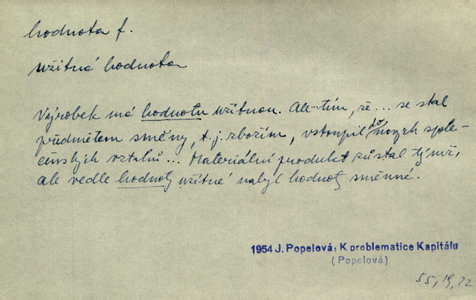 hodnota f.
užitná hodnota
Výrobek má hodnotu užitnou. Ale tím, že ... se stal
předmětem směny, t.j. zbožím, vstoupil do nových spole-
čenských vztahů ... Materiální produkt zůstal týmž,
ale vedle hodnoty užitné nabyl hodnoty směnné.
1954 J. Popelová: K problematice Kapitálu
(Popelová)
55, 19, 22